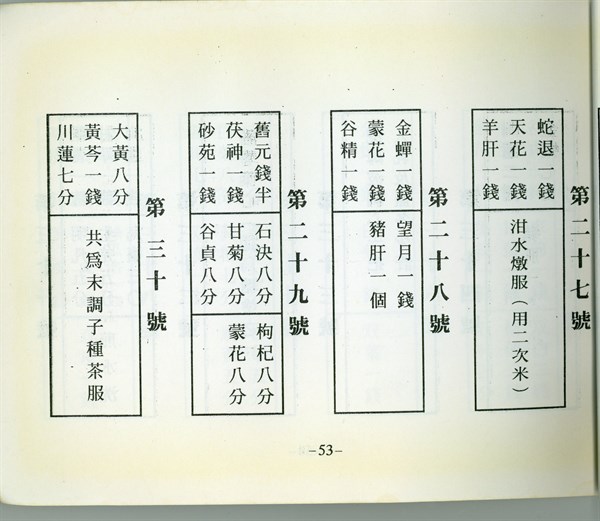 第二十七號
蛇退一錢
天花一錢
羊肝一錢
泔水燉服（用二次米）
第二十八號
金蟬一錢
蒙花一錢
谷精一錢
望月一錢
豬肝一個
第二十九號
舊元錢半
茯神一錢
砂苑一錢
石決八分
甘菊八分
谷貞八分
枸杞八分
蒙花八分
第三十號
大黃八分
黃芩一錢
川蓮七分
共爲末調子種茶服
-53-